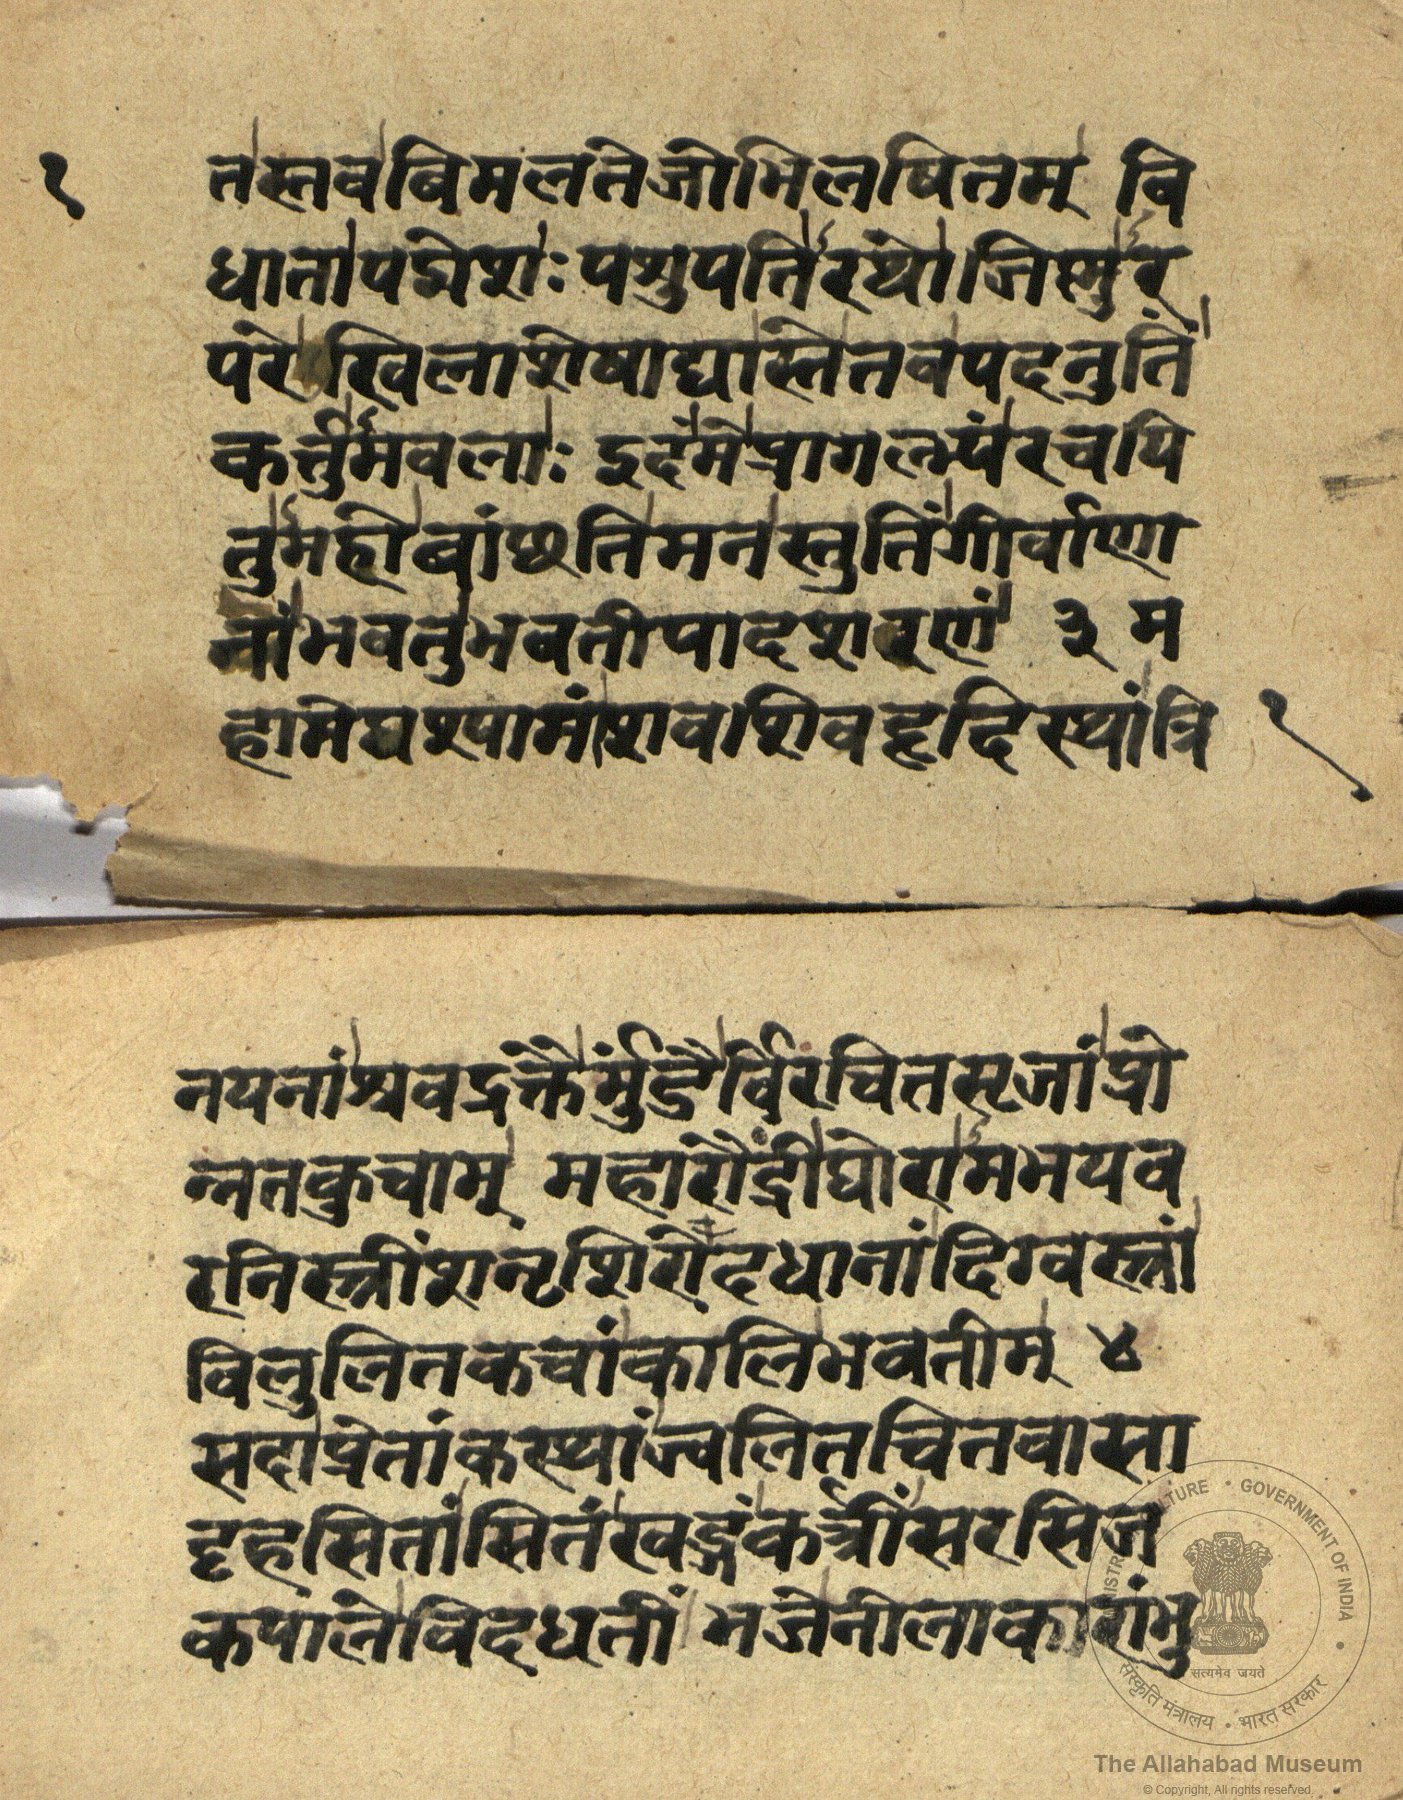 १
तस्तवबिमलतेजोभिलषितम् वि
धातापद्मेशः पशुपतिरथोजिष्णुर
परेखिलाशेषाद्यास्तेतवपदनुतिं
कर्त्तुमवलाः इदंमेप्रागल्भ्यंरचयि
तुमहोबांछतिमनस्तुतिंगीर्वाणा
नांभवतुभवतीपादशरणं ३ म
हामेघश्यामांशवशिवहृदिस्थांत्रि
१
नयनांश्रवद्रक्तैर्मुंडैर्विरचितसृजांप्रो
न्नतकुचाम् महारौद्रींघोरामभयव
रनिस्त्रींशनृशिरोदधानांदिग्वस्त्रां
विलुलितकचांकालिभवतीम् ४
सदाप्रेतांकस्थांज्वलितचितवासा
दृहसितांसितंखड्गंकर्त्रींसरसिज
कपालेविदधतीं भजेनीलाकारांमु
MINISTRY OF CULTURE • GOVERNMENT OF INDIA
सत्यमेव जयते
संस्कृति मंत्रालय • भारत सरकार
The Allahabad Museum
© Copyright, All rights reserved.